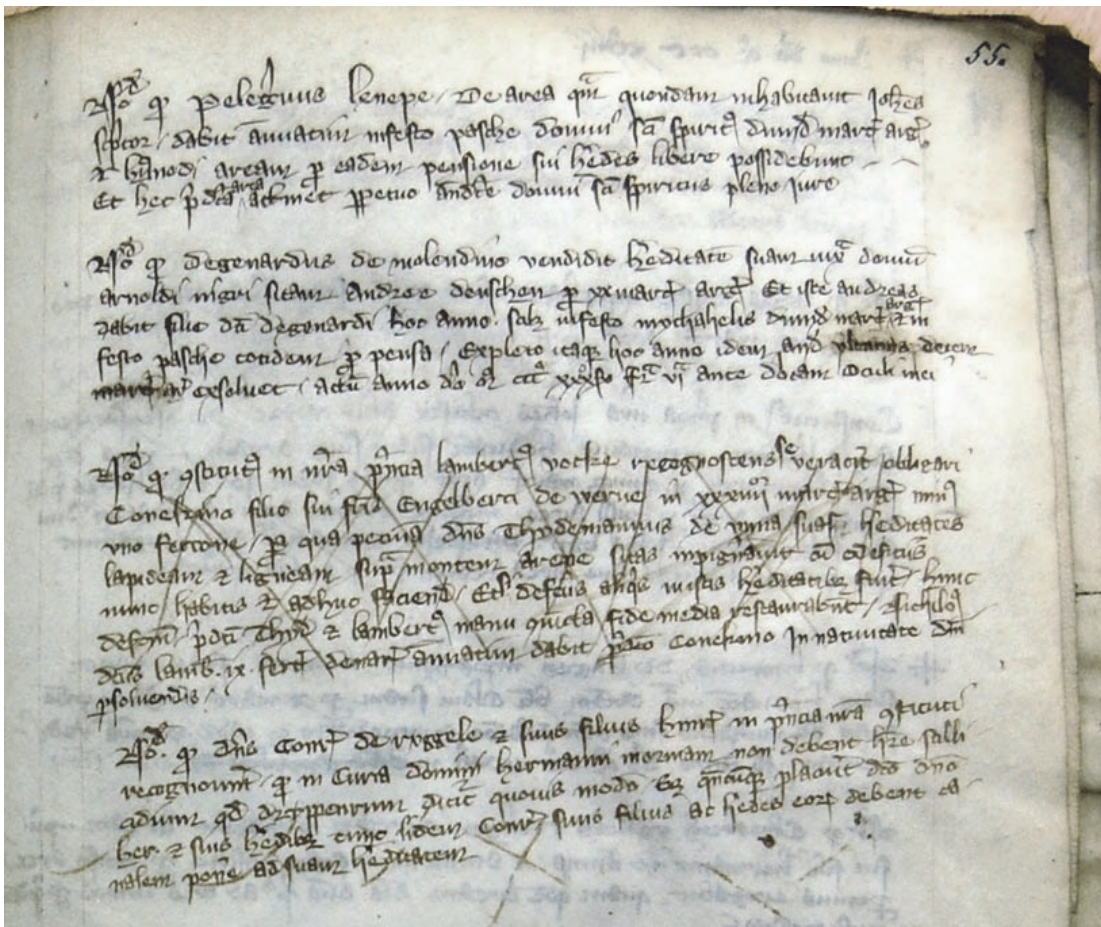 55.
Nod ꝙ Peleg'mus lenepe / De area qm̄ quondam inhabitauit Joh̄es
sc'ptor / dabit annuatim in festo pasche domui sc̄i spirit⁹ dimid marc̄ arḡ.
⁊ hmōdi aream ꝓ eadem pensione sui h'edes libere possidebunt
Et hec p̄dc̄a area attinet ꝑpetuo dicte domui sc̄i spiritus pleno iure
Nod ꝙ Degenardus de molendino vendidit h'editatē suam iux̄ domū
arnoldi nigri sitam Andree denschen ꝓ xx marc̄ arḡ Et iste andreas
dabit filie dc̄i Degenardi hoc anno . sc̄lz in festo mychahelis dimid marc̄ arḡ ⁊ in
festo pasche totidem ꝓ pensa / Expleto itaqꝫ hoc anno idem and
exsoluet / actū anno dn̄i fr̄a vi ante dn̄cam Oculi mei
Nod ꝙ ꝯstitut⁹ in nr̄a p̄ncia lambert⁹ vocke recognoscens se veracit' obligari
Conekino filio sui fr̄is Engelberti de verne in xxxiiii marc̄ arḡ min⁹
vno fertone / ꝓ qua pecunia dn̄s Thydemannus de vnna suas h'editates
lapideam ⁊ ligneam sup̄ montem sitas inpign̄auit cū edificiis
nunc habitis ⁊ adhuc faciend / Et si defcūs aliq̄s in istis h'editatibꝫ fuit / hunc
defcm̄ / p̄dc̄i Thid ⁊ lambert⁹ manu ꝯiūcta fide media restaurabūt / Nichilo⁹
dc̄us lamb. ix. fert denar annuatim dabit p̄dc̄o Conekino In natiuitate dn̄i
ꝑsoluendis /
Nod. ꝙ dn̄s Conr̄ de rxggele ⁊ suus filius hinr̄ in p̄ncia nr̄a ꝯstituti
recognouer̄t / ꝙ in Curia domini hermanni mormān non debent h̄re stilli
cidium qd̄ dicit' quouis modo Et q̄ncūqꝫ placuit dc̄o dn̄o
her. ⁊ suis h'edibꝫ tunc iidem Conr̄ suus filius ac h'edes eorꝫ debent ca
nalem pon̄e ad suam h'editatem